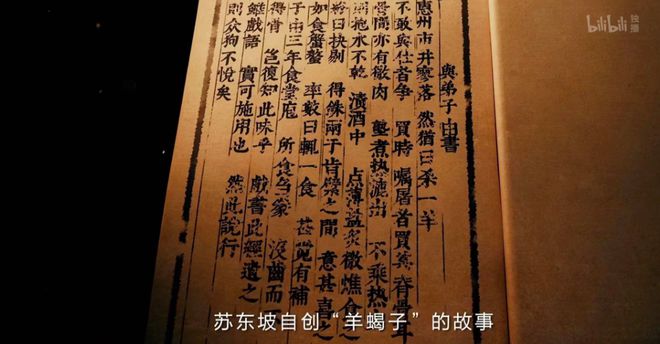 bilibili 独播
與弟子由書
惠州市井寥落 然猶日杀一羊
不敢與仕者争 買時 嘱屠者買其脊骨耳
骨間亦有微肉 熟煮热漉出 不乘热
抱水不乾 漬酒中 点薄盐炙微燋食之
終日抉剔 得銖兩于肯綮之間 意甚喜之
如食蟹螯 率數日輒一食 甚觉有補
子由三年食堂庖 所食芻豢 沒齒而
得骨 岂復知此味乎 戲書此遗之
雖戲語 實可施用也 然此說行
則众狗不悦矣
苏东坡自创“羊蝎子”的故事